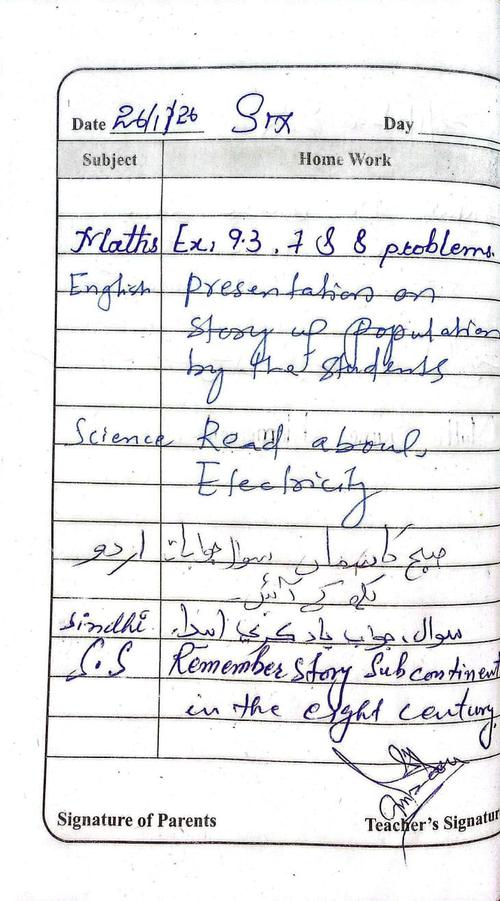 Date 26/1/26 Six Day
Subject Home Work
Maths Ex: 9.3, 7 & 8 problems.
English presentation on
story of population
by the students
Science Read about
Electricity
اردو صبح کا سوال جوابات
لکھ کے آئیں۔
Sindhi سوال، جواب ياد ڪري
S.S Remember story Subcontinent
in the eight century.
Signature of Parents Teacher's Signatur